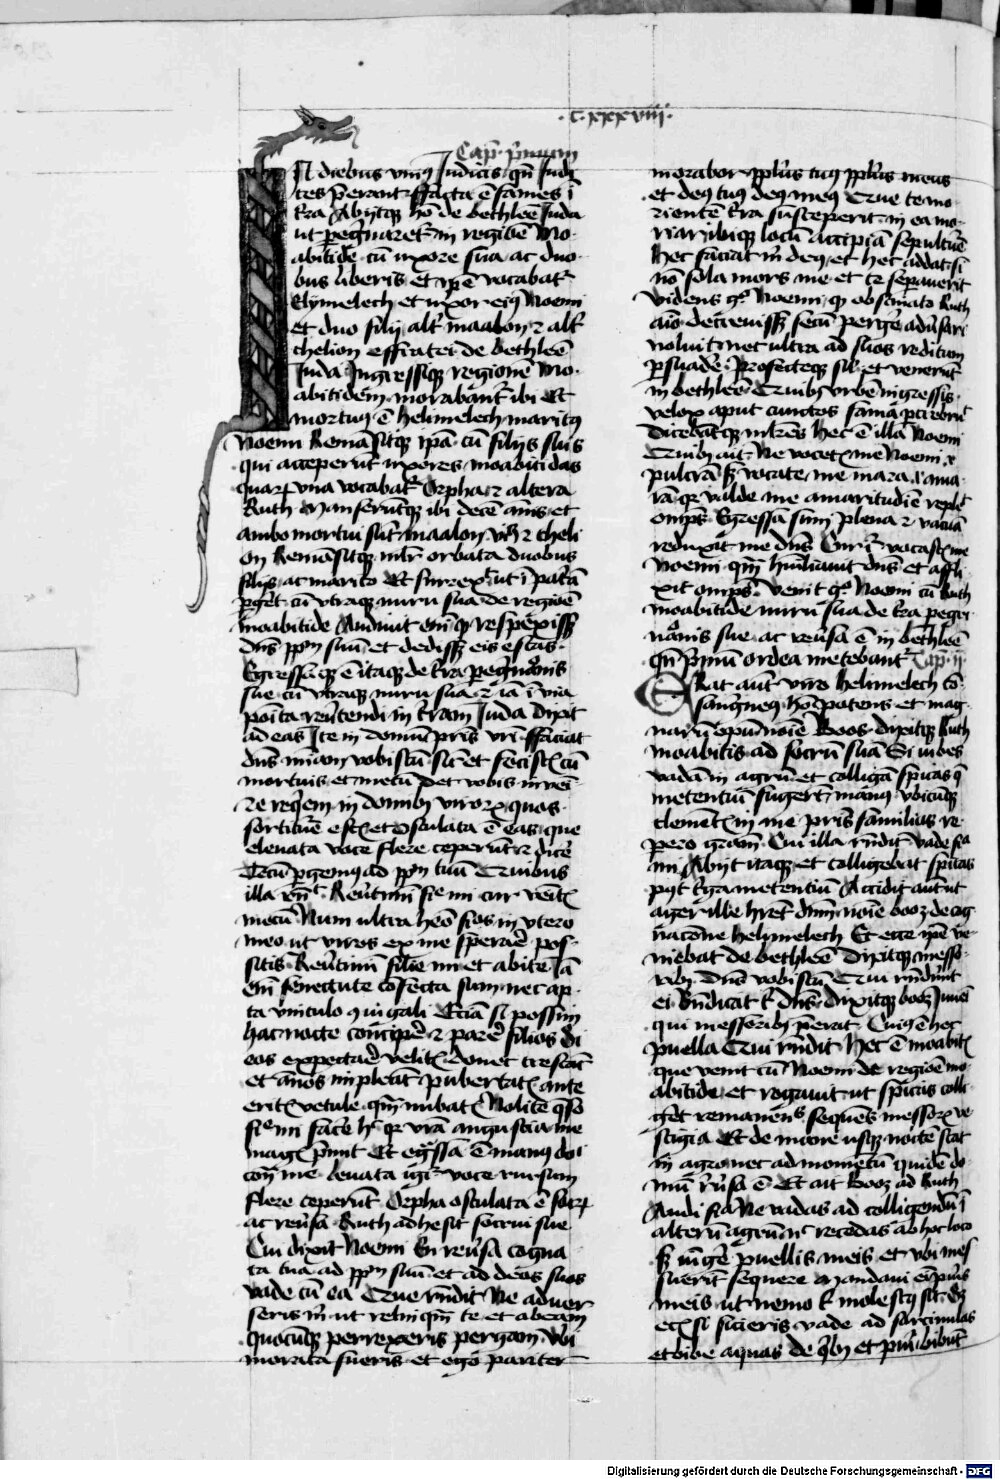 .c.xxxviii.
Cap̄. p̄mum
IN diebus vniꝰ Judicis qn̄ Judi
ces p̄erant ffacta ē fames ī
t̄ra Abijtqꝫ hō de bethleē Juda
ut pegͥnaret᷑ in regiōe Mo
abitide cū uxore sua ac duo
bus liberis et ip̄e vocabat᷑
Elymelech et uxor eiꝰ Noemi
et duo filij alt᷑ maalon ⁊ alt᷑
chelion effratei de bethleē
Juda Ingressiqꝫ regionē Mo
abitidem morabant᷑ ibi Et
mortuꝰ ē helimelech maritꝰ
Noemi Remāsitqꝫ ip̄a cū filijs suis
qui acceperūt uxores moabitidas
quaꝝ vna vocabat᷑ Orpha ⁊ altera
Ruth Manserūtqꝫ ibi decē annis et
ambo mortui sūt maalon vꝫ ⁊ cheli
on Remāsitqꝫ ml̄r orbata duobus
filijs ac marito Et surrexͭ ut ī pat͛ā
p̄get cū vtraqꝫ nuru sua de regiōe
moabitide Audiuit em̄ qꝙ respexissꝫ
dn̄s ppl̄m suū et dedissꝫ eis escas
Egressa qꝫ ē itaqꝫ de t̄ra pegͥnac̄onis
sue cū vtraqꝫ nuru sua ⁊ iā ī via
posita reūtendi in t̄ram Juda dixit
ad eas Ite in domū mr̄is vr̄i ffaciat
dn̄s mīam vobiscū sic̄ et fecistꝭ cū
mortuis et mecū Det vobis inueī
re reqͥem in domibꝫ viroꝝ quos
sortitur̄e estꝭ et osculata ē eas que
eleuata voce flere ceperūt ⁊ dice᷑
Tecū p̄gemꝰ ad ppl̄m tuū Quibus
illa rn̄t Reūtimī fīe mi cur venitꝭ
mecū Num ultra heō fios in vtero
meo ut viros ex me sperare pos
sitis Reūtimī filie mi et abite Jā
em̄ senectute cōfecta sum nec ap
ta vinculo ꝯiugali Eciā si possim
hac nocte concipe᷑ ⁊ pare᷑ filios Si
eos expectare velitꝭ donec crescāt
et annos impleāt pubertatꝭ ante
eritꝭ vetule qͣm nubatꝭ Nolite qͣso
fīe mi face hͨ qꝛ vr̄a angustia me
magꝭ p̄mit Et egͥssa ē manꝰ dn̄i
contͣ me leuata igiͬ voce rursum
flere ceperūt Orpha osculata ē socrū
ac reūsa Ruth adhesit socrui sue
Cui dixit Noemi En reūsa cogna
ta tua ad ppl̄m suū et ad deos suos
vade cū ea Que rn̄dit Ne aduer
seris m̄ ut relinqͣm te et abeam
quocūqꝫ perrexeris pergam vbi
morata fueris et ego pariter
morabor ppl̄us tuꝰ ppl̄us meus
et deꝰ tuꝰ deꝰ meꝰ Que te mo
rientē t̄ra susceperit in ea mo
riar ibiqꝫ locū accipiā sepultur̄e
Hec faciat m̄ deꝰ et hec addat si
nō sola mors me et te sepauerit
Videns gͦ Noemi qꝙ obstinato Ruth
aīo decreuissꝫ secū perge᷑ aduersari
noluit nec ultra ad suos reditum
p̄suade᷑ Profecteqꝫ sūt et venerūt
in bethleē Quibꝫ vrbē ingressis
velox aput cunctos fama pcrebruͭ
Dicebātqꝫ ml̄res hec ē illa Noemi
Quibꝫ ait Ne vocetꝭ me Noemi .i.
pulcrā sꝫ vocate me mara .i. ama
rā qꝛ valde me amaritudīe repleͭ
omp̄s Egressa sum plena ⁊ vacuā
reduxit me dn̄s Cur gͦ vocastꝭ me
Noemi qͣm humiliauit dn̄s et affli
xit omp̄s Venit gͦ Noemi cū Ruth
moabitide nuru sua de t̄ra pegͥ
nac̄onis sue ac reūsa ē in bethleē
qn̄ p̄mū ordea metebant᷑ Cap̄. ij.
ERat aut̄ viro helimelech cō
sangͥneꝰ hō potens et mag
narū opū noīe Boos dixitqꝫ Ruth
moabitis ad socrū suā Si iubes
vadā in agrū et colligā spicas qͤ
metentiū fugerīt manꝰ vbicūqꝫ
clemētꝭ in me pr̄is familias re
pero grām Cui illa rn̄dit vade fīa
mi Abijt itaqꝫ et colligebat spicas
post t̄ga metentiū Accidit aut̄ ut
ager ille hr̄et dn̄m noīe booz de cog
nac̄one helimelech Et ecce ip̄e ve
niebat de bethleē dixitqꝫ messo
ribꝫ dn̄s vobiscū Qui rn̄derūt
ei Bn̄dicat t̄ dn̄s dixitqꝫ booz Juueī
qui messoribꝫ p̄erat Cuiꝰ ē hec
puella Qui rn̄dit Hec ē moabitꝭ
que venit cū Noemi de regiōe mo
abitide et rogauit ut spicas colli
get remanentes sequens messoꝝ ve
stigia Et de mane usqꝫ nūc stat
in agro nec ad momentū quidē do
mū reūsa ē Et ait Booz ad Ruth
Audi fīa Ne vadas ad colligendū ī
alterū agrū nͨ recedas ab hoc loco
sꝫ iūge᷑ puellis meis et vbi mes
suerīt sequere Mandaui em̄ pūis
meis ut nemo t̄ molestꝰ sit sꝫ
ecͣ si sicieris vade ad sarcinulas
et bibe aquas de qͥbꝫ et pūi bibūt
Digitalisierung gefördert durch die Deutsche Forschungsgemeinschaft - DFG